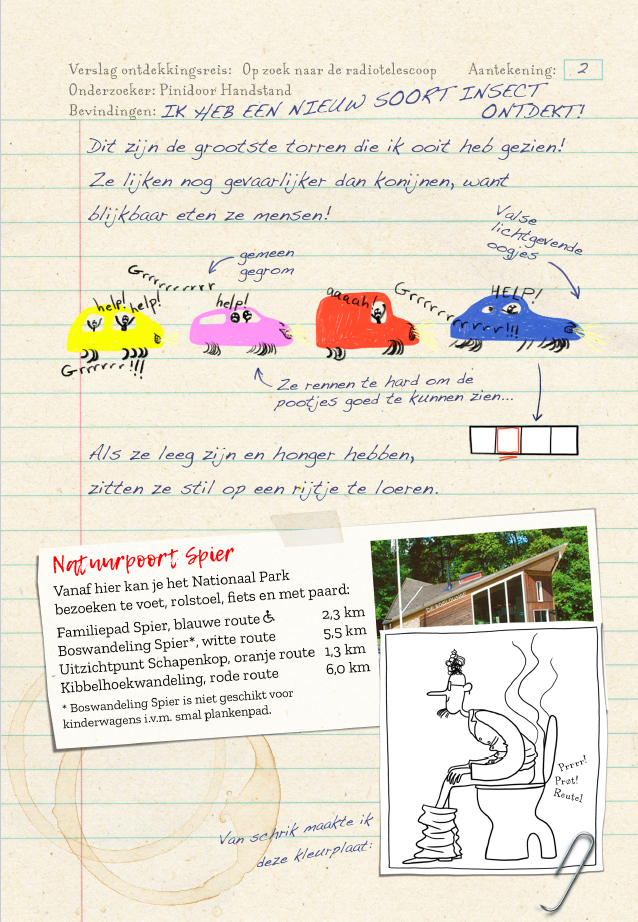 Verslag ontdekkingsreis: Op zoek naar de radiotelescoop Aantekening: 2
Onderzoeker: Pinidoor Handstand
Bevindingen: IK HEB EEN NIEUW SOORT INSECT
ONTDEKT!
Dit zijn de grootste torren die ik ooit heb gezien!
Ze lijken nog gevaarlijker dan konijnen, want
blijkbaar eten ze mensen!
Valse
lichtgevende
oogjes
gemeen
gegrom
Grrrrrrrrr
help! help!
help!
aaaah!
Grrrrrr
rrrrr!!!
HELP!
Grrrrrr!!!
Ze rennen te hard om de
pootjes goed te kunnen zien...
Als ze leeg zijn en honger hebben,
zitten ze stil op een rijtje te loeren.
Natuurpoort Spier
Vanaf hier kan je het Nationaal Park
bezoeken te voet, rolstoel, fiets en met paard:
Familiepad Spier, blauwe route 2,3 km
Boswandeling Spier*, witte route 5,5 km
Uitzichtpunt Schapenkop, oranje route 1,3 km
Kibbelhoekwandeling, rode route 6,0 km
* Boswandeling Spier is niet geschikt voor
kinderwagens i.v.m. smal plankenpad.
Prrrr!
Prot!
Reutel
Van schrik maakte ik
deze kleurplaat: